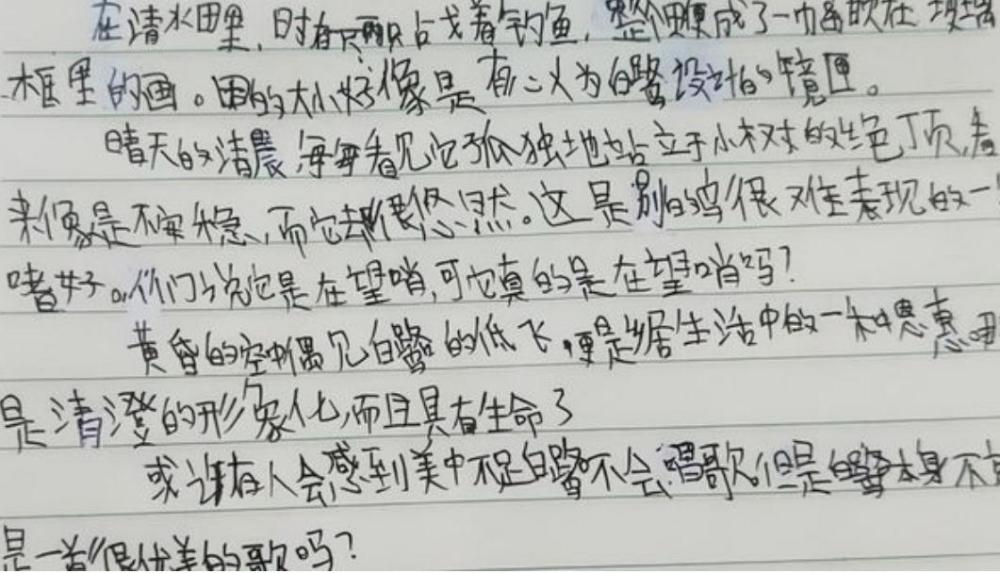 在清水田里,时有只两只占戈着钓鱼,整个田便成了一幅嵌在玻璃
框里的画。田的大小好像是有心人为白鹭设计的镜匣。
晴天的清晨,每每看见它孤独地站立于小树的绝顶,看
来像是不安稳,而它却很悠然。这是别的鸟很难表现的一
嗜好。人们说它是在望哨,可它真的是在望哨吗?
黄昏的空中偶见白鹭的低飞,更是居生活中的一种恩惠。那
是清澄的形象化,而且具有生命了
或许有人会感到美中不足白鹭不会唱歌。但是白鹭本身不
是一首很优美的歌吗?